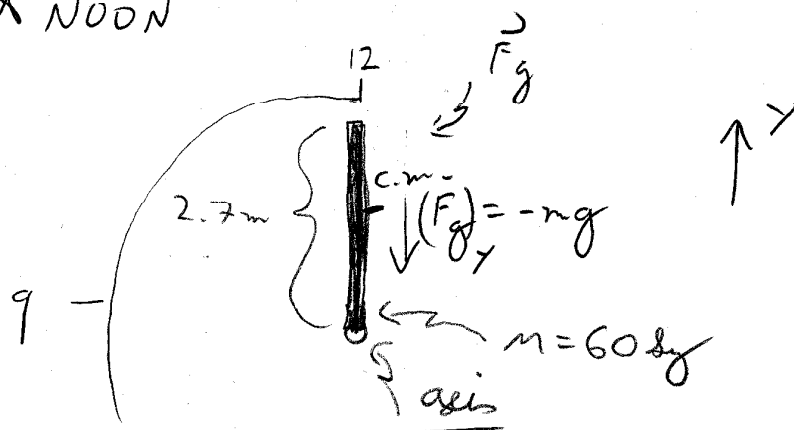 NOON
12
F_g
Y
c.m.
2.7m
(F_g)_y = -mg
9
m = 60 kg
axis